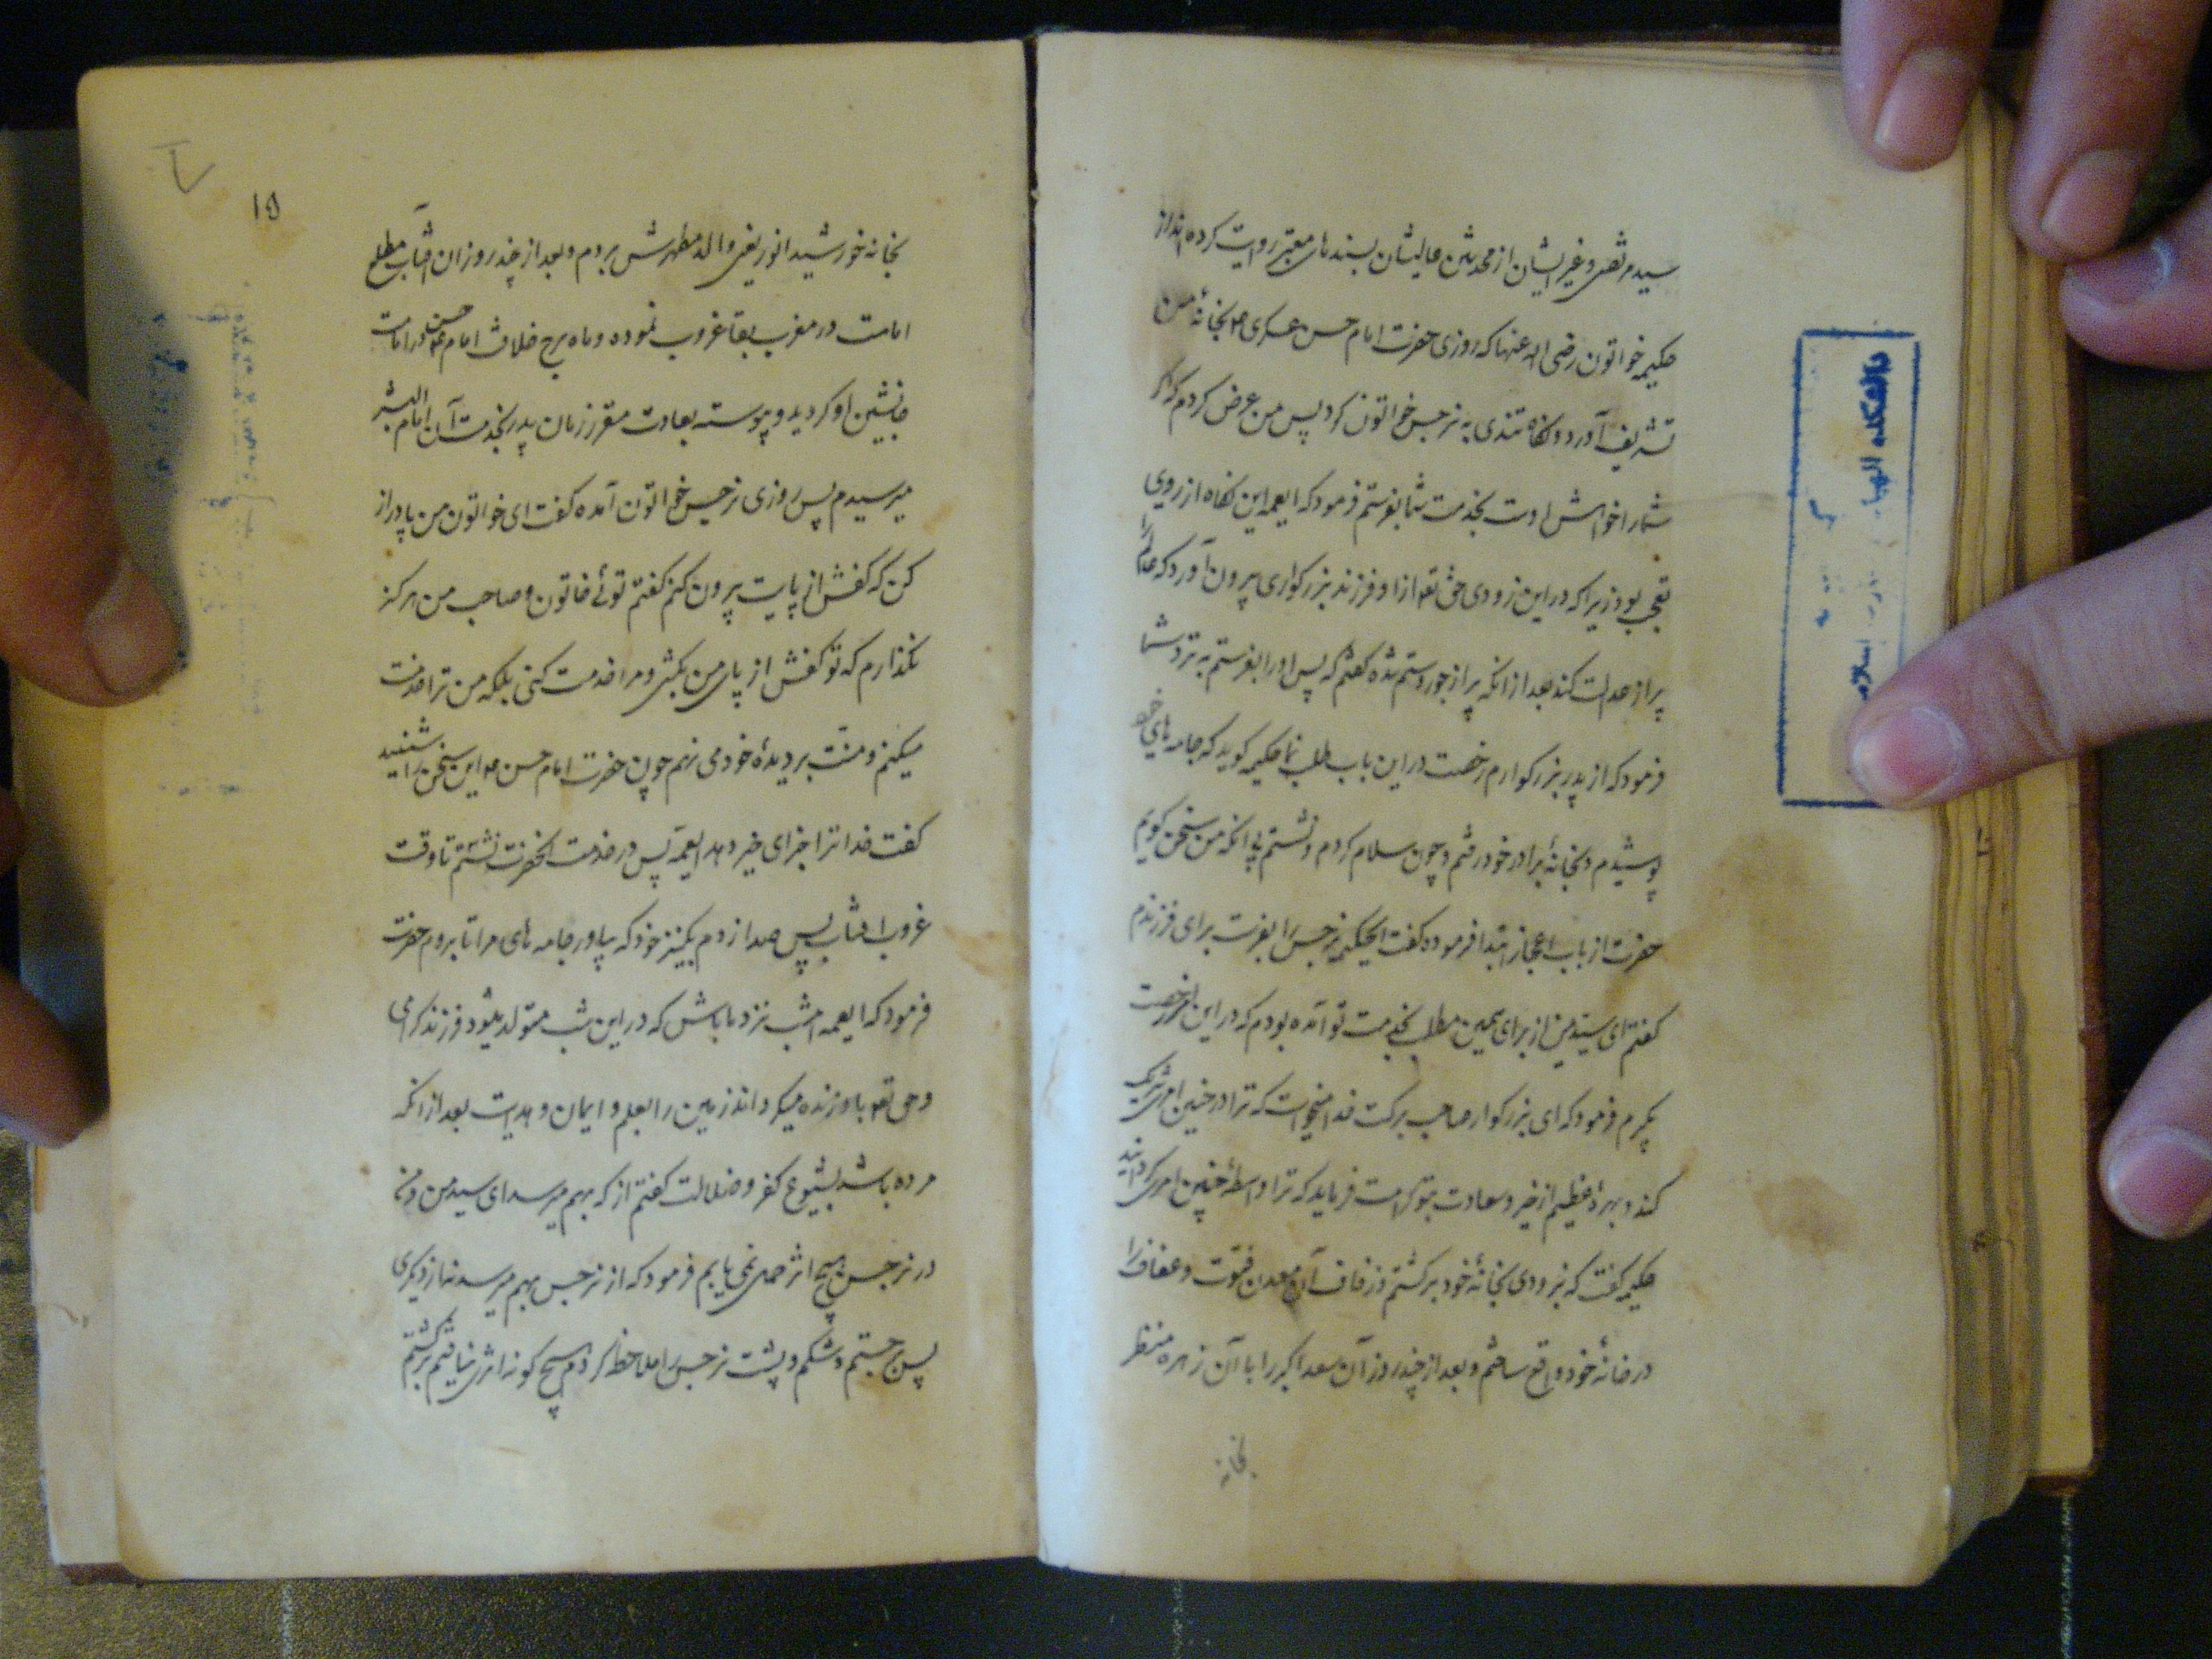 سید مرتضی و غیر ایشان از محدثین عالیشان بسندهای معتبر روایت کرده اند از
حکیمه خواتون رضی الله عنها که روزی حضرت امام حسن عسکری ع بخانهٔ من
تشریف آورد و نکاه تندی به نرجس خواتون کرد پس من عرض کردم که اگر
شما را خواهش اوست بخدمت شما بفرستم فرمود که ایعمه این نکاه از روی
تعجب بود زیرا که در این زودی حق تع از او فرزند بزرکواری بیرون آورد که عالم را
پر از عدالت کند بعد از انکه پر از جور و ستم شده کفتم که پس او را بفرستم به نزد شما
فرمود که از پدر بزرکوارم رخصت در این باب طلب نما حکیمه کوید که جامه های خود
پوشیدم و بخانهٔ برادر خود رفتم و چون سلام کردم و نشستم بی انکه من سخن کویم
حضرت از باب اعجاز ابتدا فرموده کفت ایحکیمه نرجس را بفرست برای فرزندم
کفتم ای سید من از برای همین مطلب بخدمت تو آمده بودم که در این امر رخصت
بکیرم فرمود که ای بزرکوار صاحب برکت خدا میخواست که ترا در چنین امری شریک
کند و بهرهٔ عظیم از خیر و سعادت بتو کرامت فرماید که ترا واسطهٔ چنین امری کردانید
حکیمه کفت که بزودی بخانهٔ خود برکشتم و زفاف آن معدن فتوت و عفاف را
در خانهٔ خود واقع ساختم و بعد از چند روز آن سعد اکبر را با آن زهره منظر
بخانه
۱۵
بخانه خورشید انور یعنی والد مطهرش بردم و بعد از چند روز ان آفتاب مطلع
امامت در مغرب بقا غروب نموده و ماه برج خلافت امام حسن ع در امامت
جانشین او کردید و پیوسته بعادت مقرر زمان پدر بخدمت آن امام البشر
میرسیدم پس روزی نرجس خواتون آمده کفت ای خواتون من پا دراز
کن که کفش از پایت بیرون کنم کفتم توئی خاتون و صاحب من هرکز
نکذارم که تو کفش از پای من بکشی و مرا خدمت کنی بلکه من ترا خدمت
میکنم و منت بر دیدهٔ خود می نهم چون حضرت امام حسن ع این سخن را شنید
کفت خدا ترا جزای خیر دهد ایعمه پس در خدمت آنحضرت نشستم تا وقت
غروب افتاب پس صدا زدم بکنیز خود که بیاور جامه های مرا تا بروم حضرت
فرمود که ایعمه امشب نزد ما باش که در این شب متولد میشود فرزند کرامی
و حق تع باو زنده میکرداند زمین را بعلم و ایمان و هدایت بعد از انکه
مرده باشد بشیوع کفر و ضلالت کفتم از که بهم میرسد ای سید من و من
در نرجس هیچ اثر حملی نمی یابم فرمود که از نرجس بهم میرسد نه از دیکری
پس جستم و شکم و پشت نرجس را ملاحظه کردم هیچ کونه اثری نیافتم برکشتم